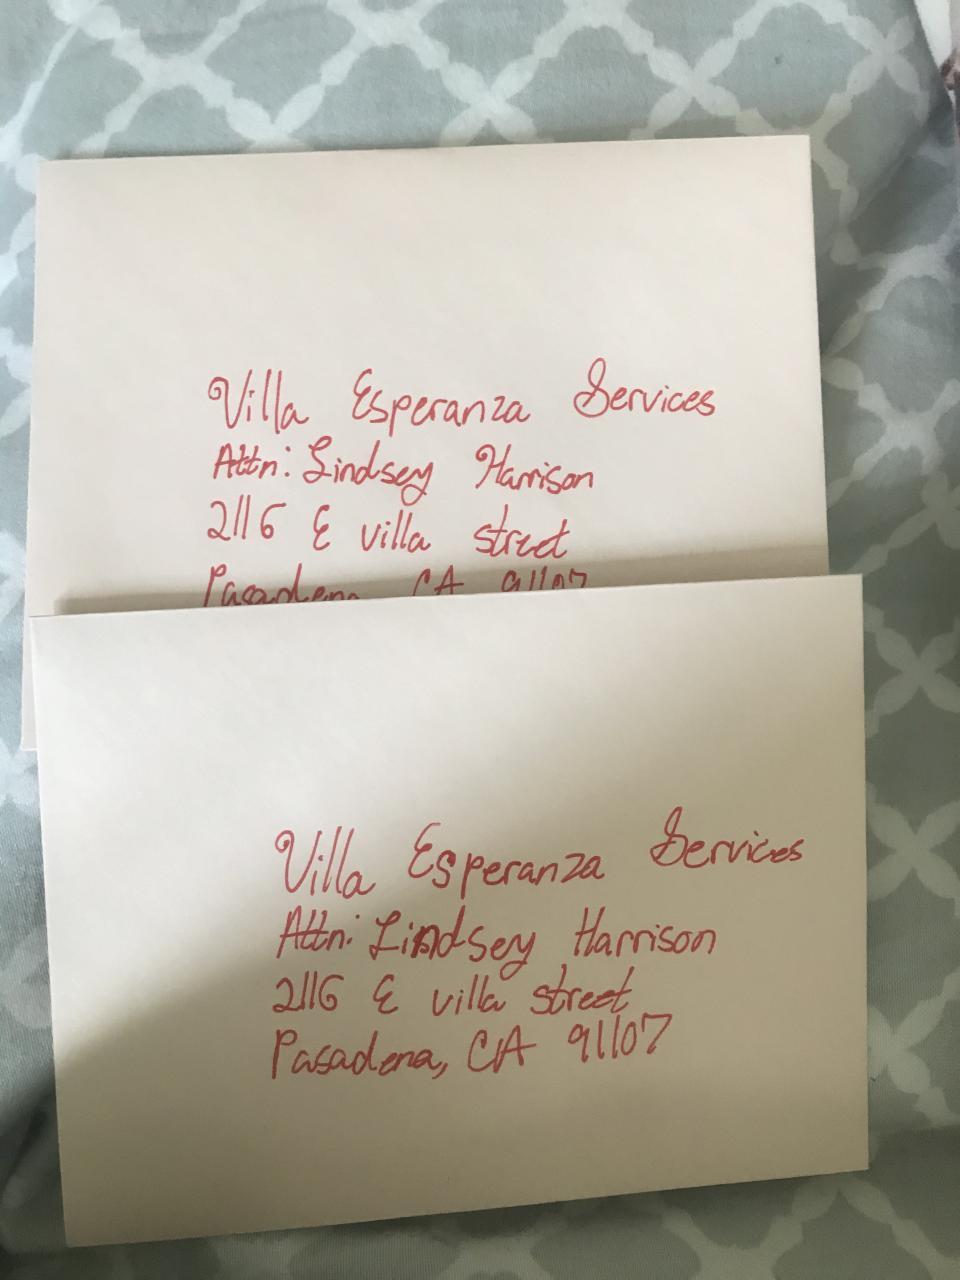 Villa Esperanza Services
Attn: Lindsey Harrison
2116 E villa street
Pasadena CA 91107
Villa Esperanza Services
Attn: Lindsey Harrison
2116 E villa street
Pasadena, CA 91107